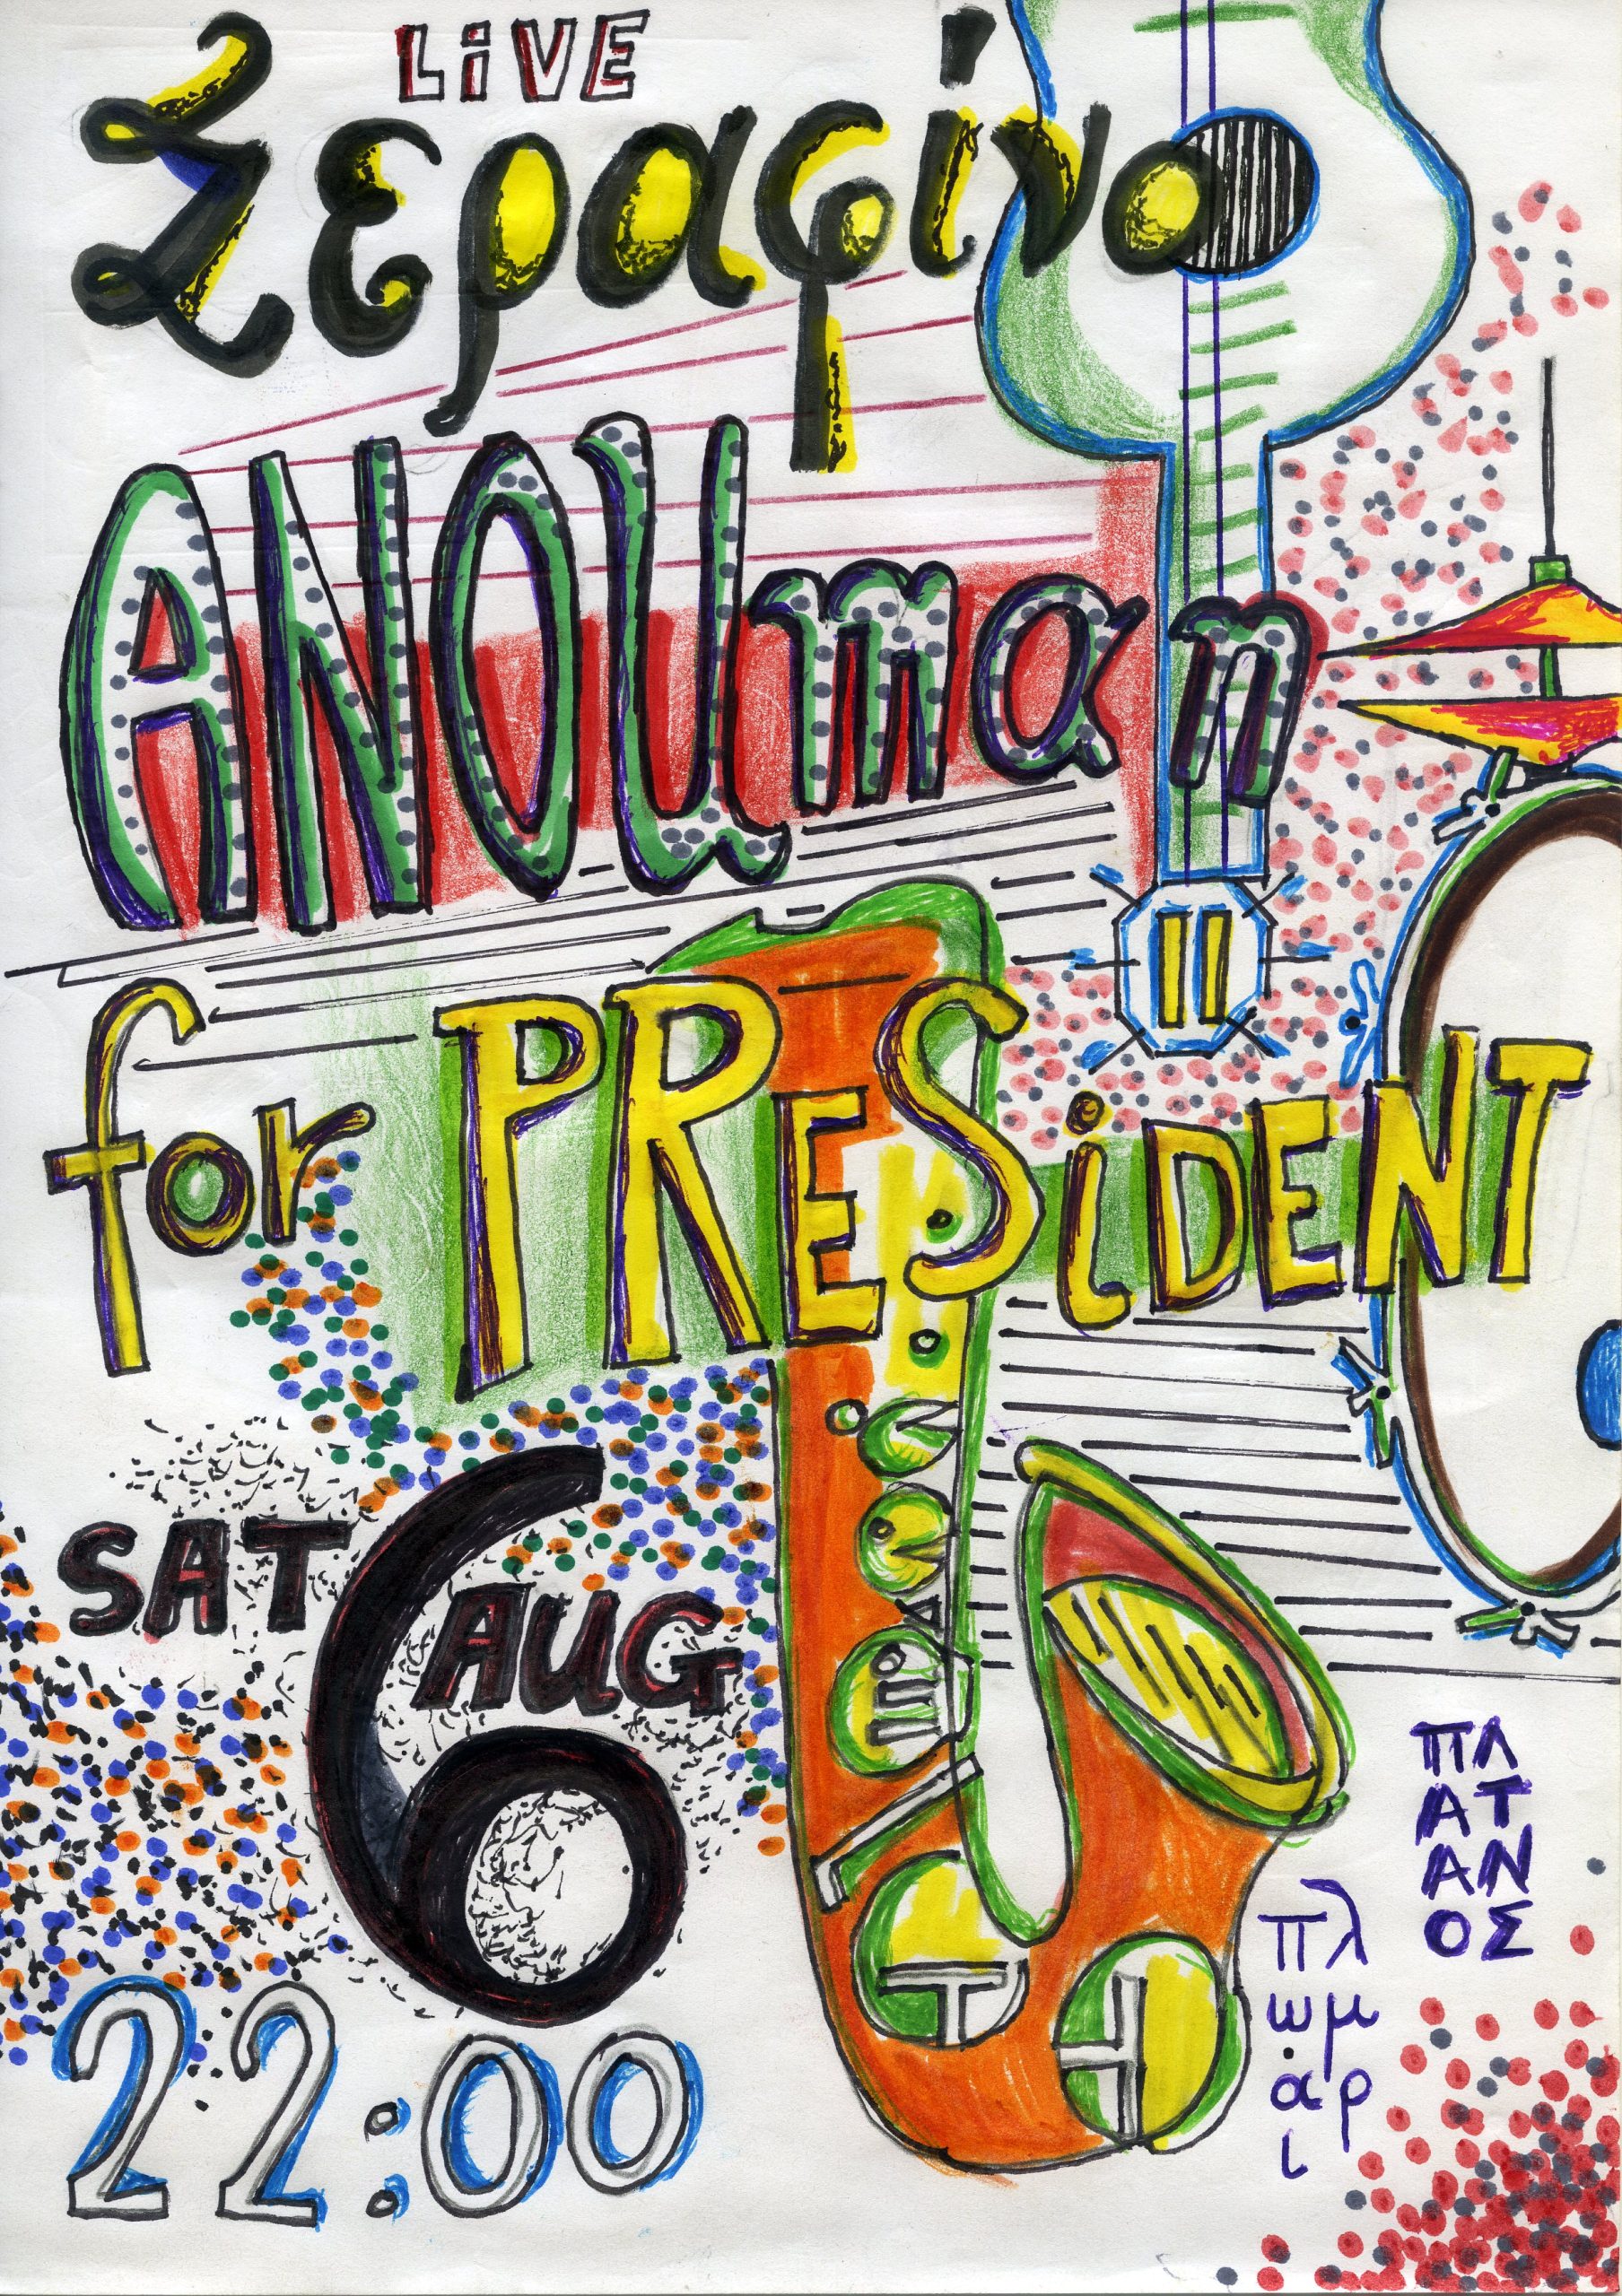 LiVE
Σεραφίνο
ANOUman
for PRESiDENT
SAT 6 AUG
22:00
ΠΛ
ΑΤ
ΑΝ
ΟΣ
πλ
ωμ
άρ
ι